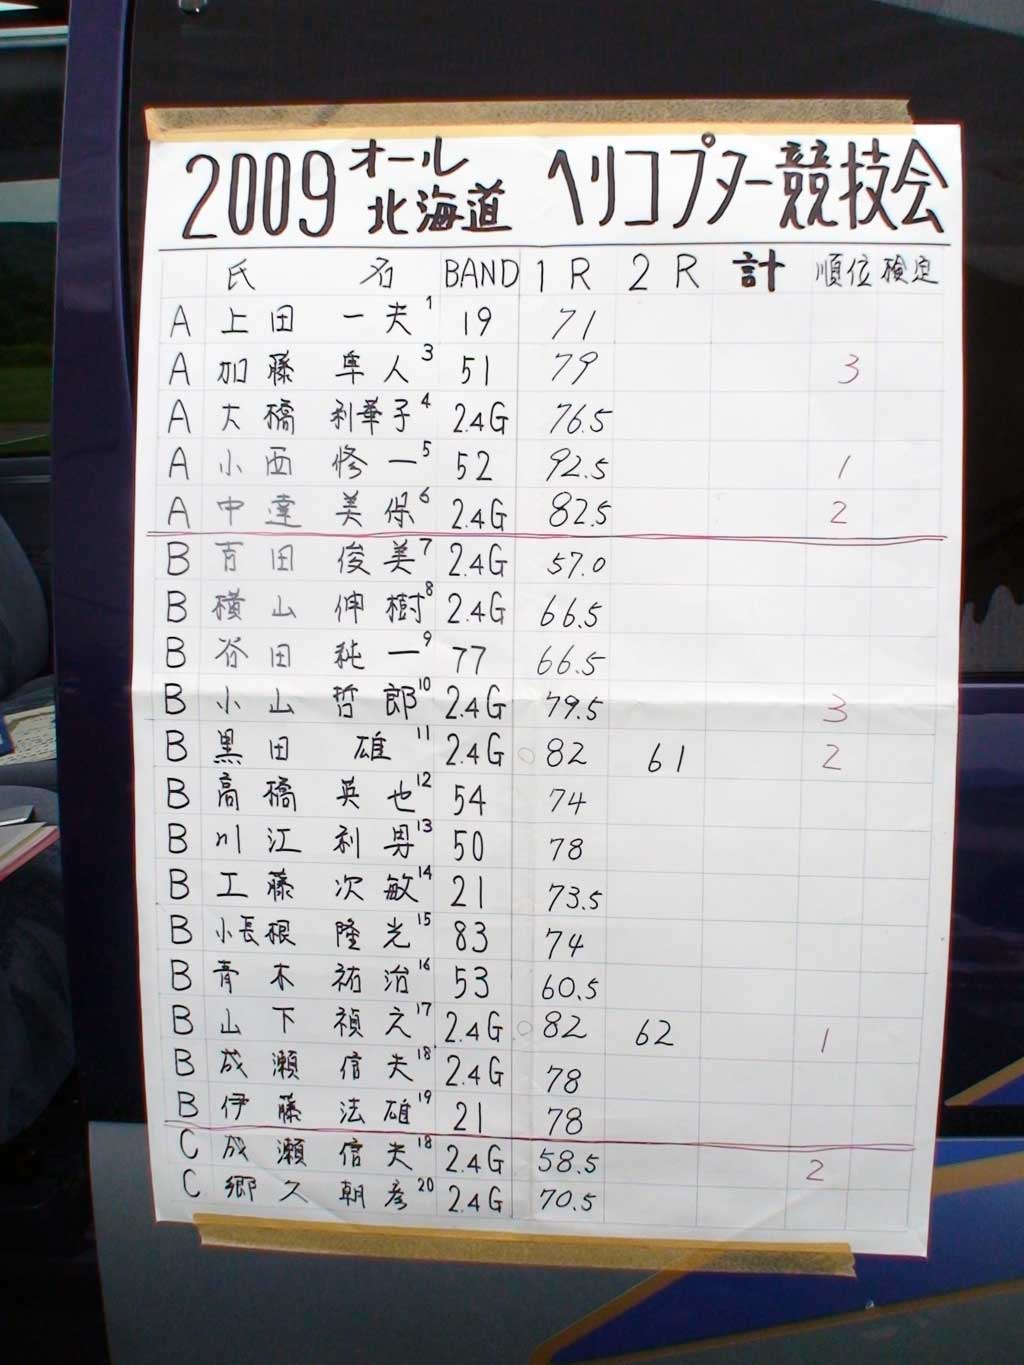 2009 オール北海道 ヘリコプター競技会
氏名 BAND 1R 2R 計 順位 検定
A 上田 一夫 1 19 71
A 加藤 隼人 3 51 79 3
A 大橋 利華子 4 2.4G 76.5
A 小西 修一 5 52 92.5 1
A 中達 美保 6 2.4G 82.5 2
B 吉田 俊美 7 2.4G 57.0
B 横山 伸樹 8 2.4G 66.5
B 谷田 純一 9 77 66.5
B 小山 哲郎 10 2.4G 79.5 3
B 黒田 雄 11 2.4G 82 61 2
B 高橋 英也 12 54 74
B 川江 利男 13 50 78
B 工藤 次敏 14 21 73.5
B 小長根 隆光 15 83 74
B 青木 祐治 16 53 60.5
B 山下 禎之 17 2.4G 82 62 1
B 成瀬 信夫 18 2.4G 78
B 伊藤 法雄 19 21 78
C 成瀬 信夫 18 2.4G 58.5 2
C 郷久 朝彦 20 2.4G 70.5